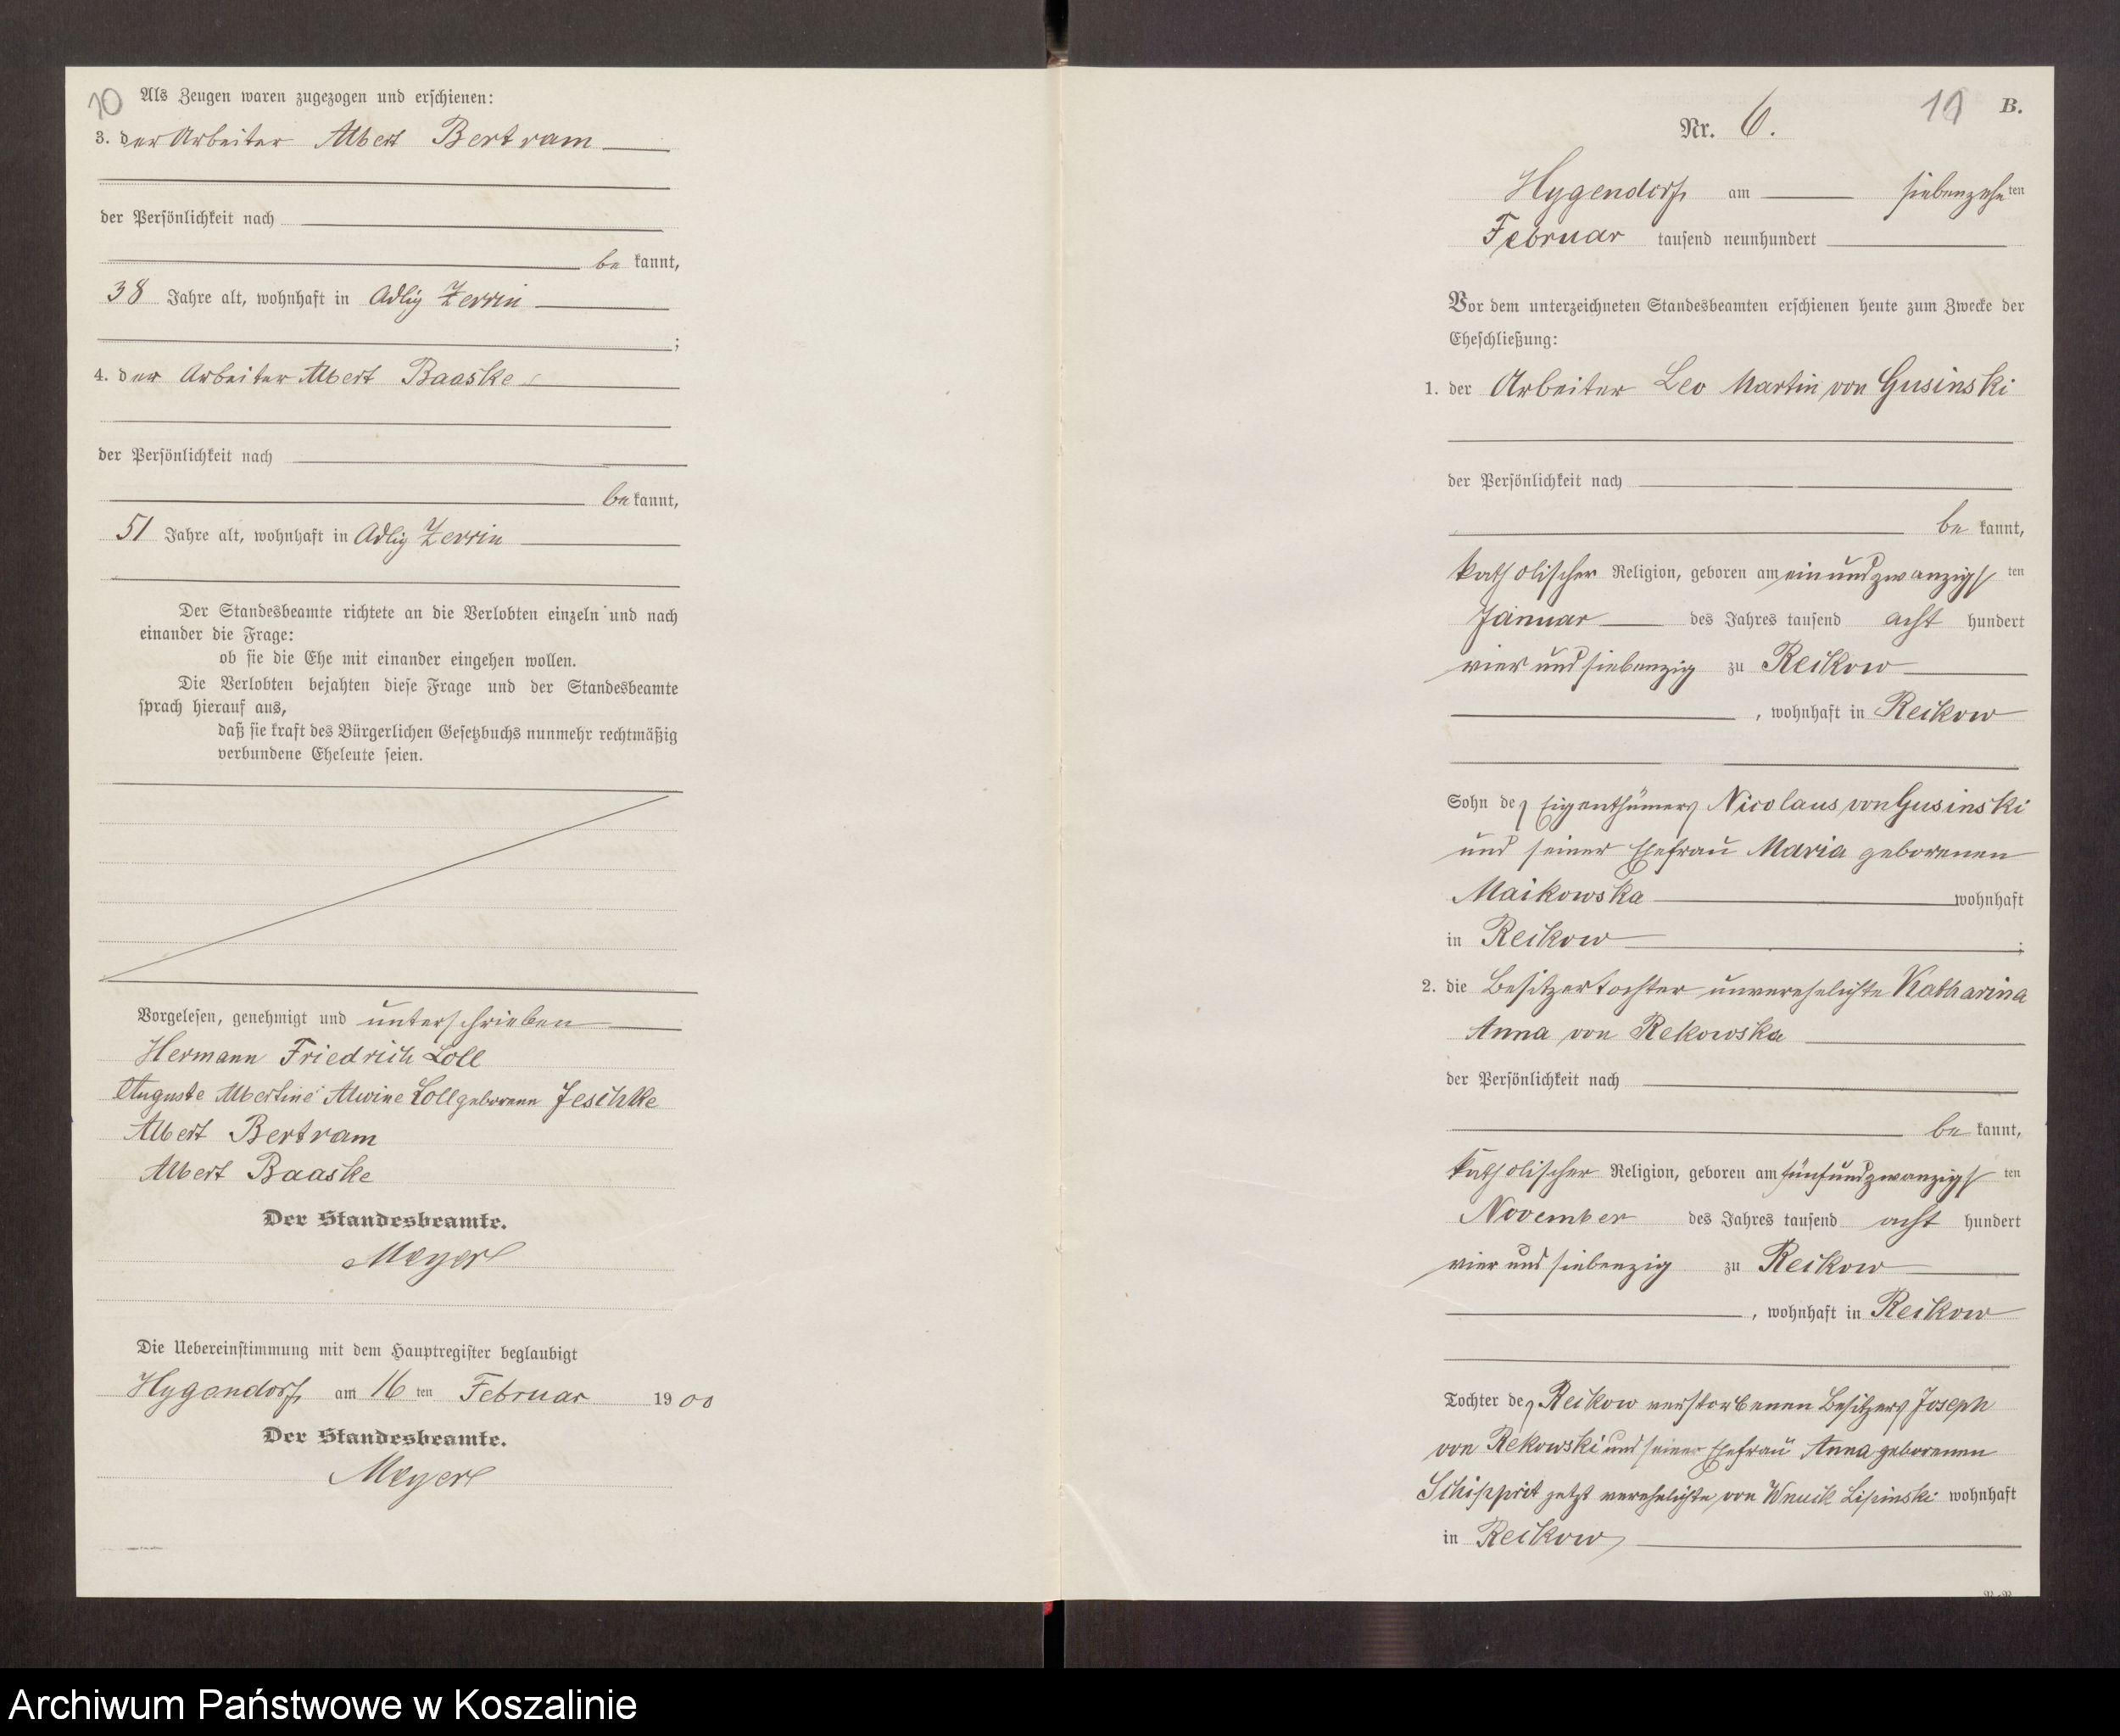 10
Als Zeugen waren zugezogen und erschienen:
3. der Arbeiter Albert Bertram
der Persönlichkeit nach
be kannt,
38 Jahre alt, wohnhaft in Adlig Zerrin
;
4. der Arbeiter Albert Baaske
der Persönlichkeit nach
be kannt,
51 Jahre alt, wohnhaft in Adlig Zerrin
Der Standesbeamte richtete an die Verlobten einzeln und nach
einander die Frage:
ob sie die Ehe mit einander eingehen wollen.
Die Verlobten bejahten diese Frage und der Standesbeamte
sprach hierauf aus,
daß sie kraft des Bürgerlichen Gesetzbuchs nunmehr rechtmäßig
verbundene Eheleute seien.
Vorgelesen, genehmigt und unterschrieben
Hermann Friedrich Loll
Auguste Albertine Alwine Loll geborene Jeschke
Albert Bertram
Albert Baaske
Der Standesbeamte.
Meyer
Die Uebereinstimmung mit dem Hauptregister beglaubigt
Hygendorf am 16 ten Februar 1900
Der Standesbeamte.
Meyer
11 B.
Nr. 6.
Hygendorf am siebenzehn ten
Februar tausend neunhundert
Vor dem unterzeichneten Standesbeamten erschienen heute zum Zwecke der
Eheschließung:
1. der Arbeiter Leo Martin von Gusinski
der Persönlichkeit nach
be kannt,
katholischer Religion, geboren am einundzwanzigs ten
Januar des Jahres tausend acht hundert
vier und siebenzig zu Reikow
, wohnhaft in Reikow
Sohn des Eigenthümers Nicolaus von Gusinski
und seiner Ehefrau Maria geborenen
Maikowska wohnhaft
in Reikow ;
2. die Besitzertochter unverehelichte Katharina
Anna von Rekowska
der Persönlichkeit nach
be kannt,
katholischer Religion, geboren am fünfundzwanzigs ten
November des Jahres tausend acht hundert
vier und siebenzig zu Reikow
, wohnhaft in Reikow
Tochter des Reikow verstorbenen Besitzers Joseph
von Rekowski und seiner Ehefrau Anna geborenen
Schipprit jetzt verehelichte von Wnuck Lipinski wohnhaft
in Reikow
Archiwum Państwowe w Koszalinie